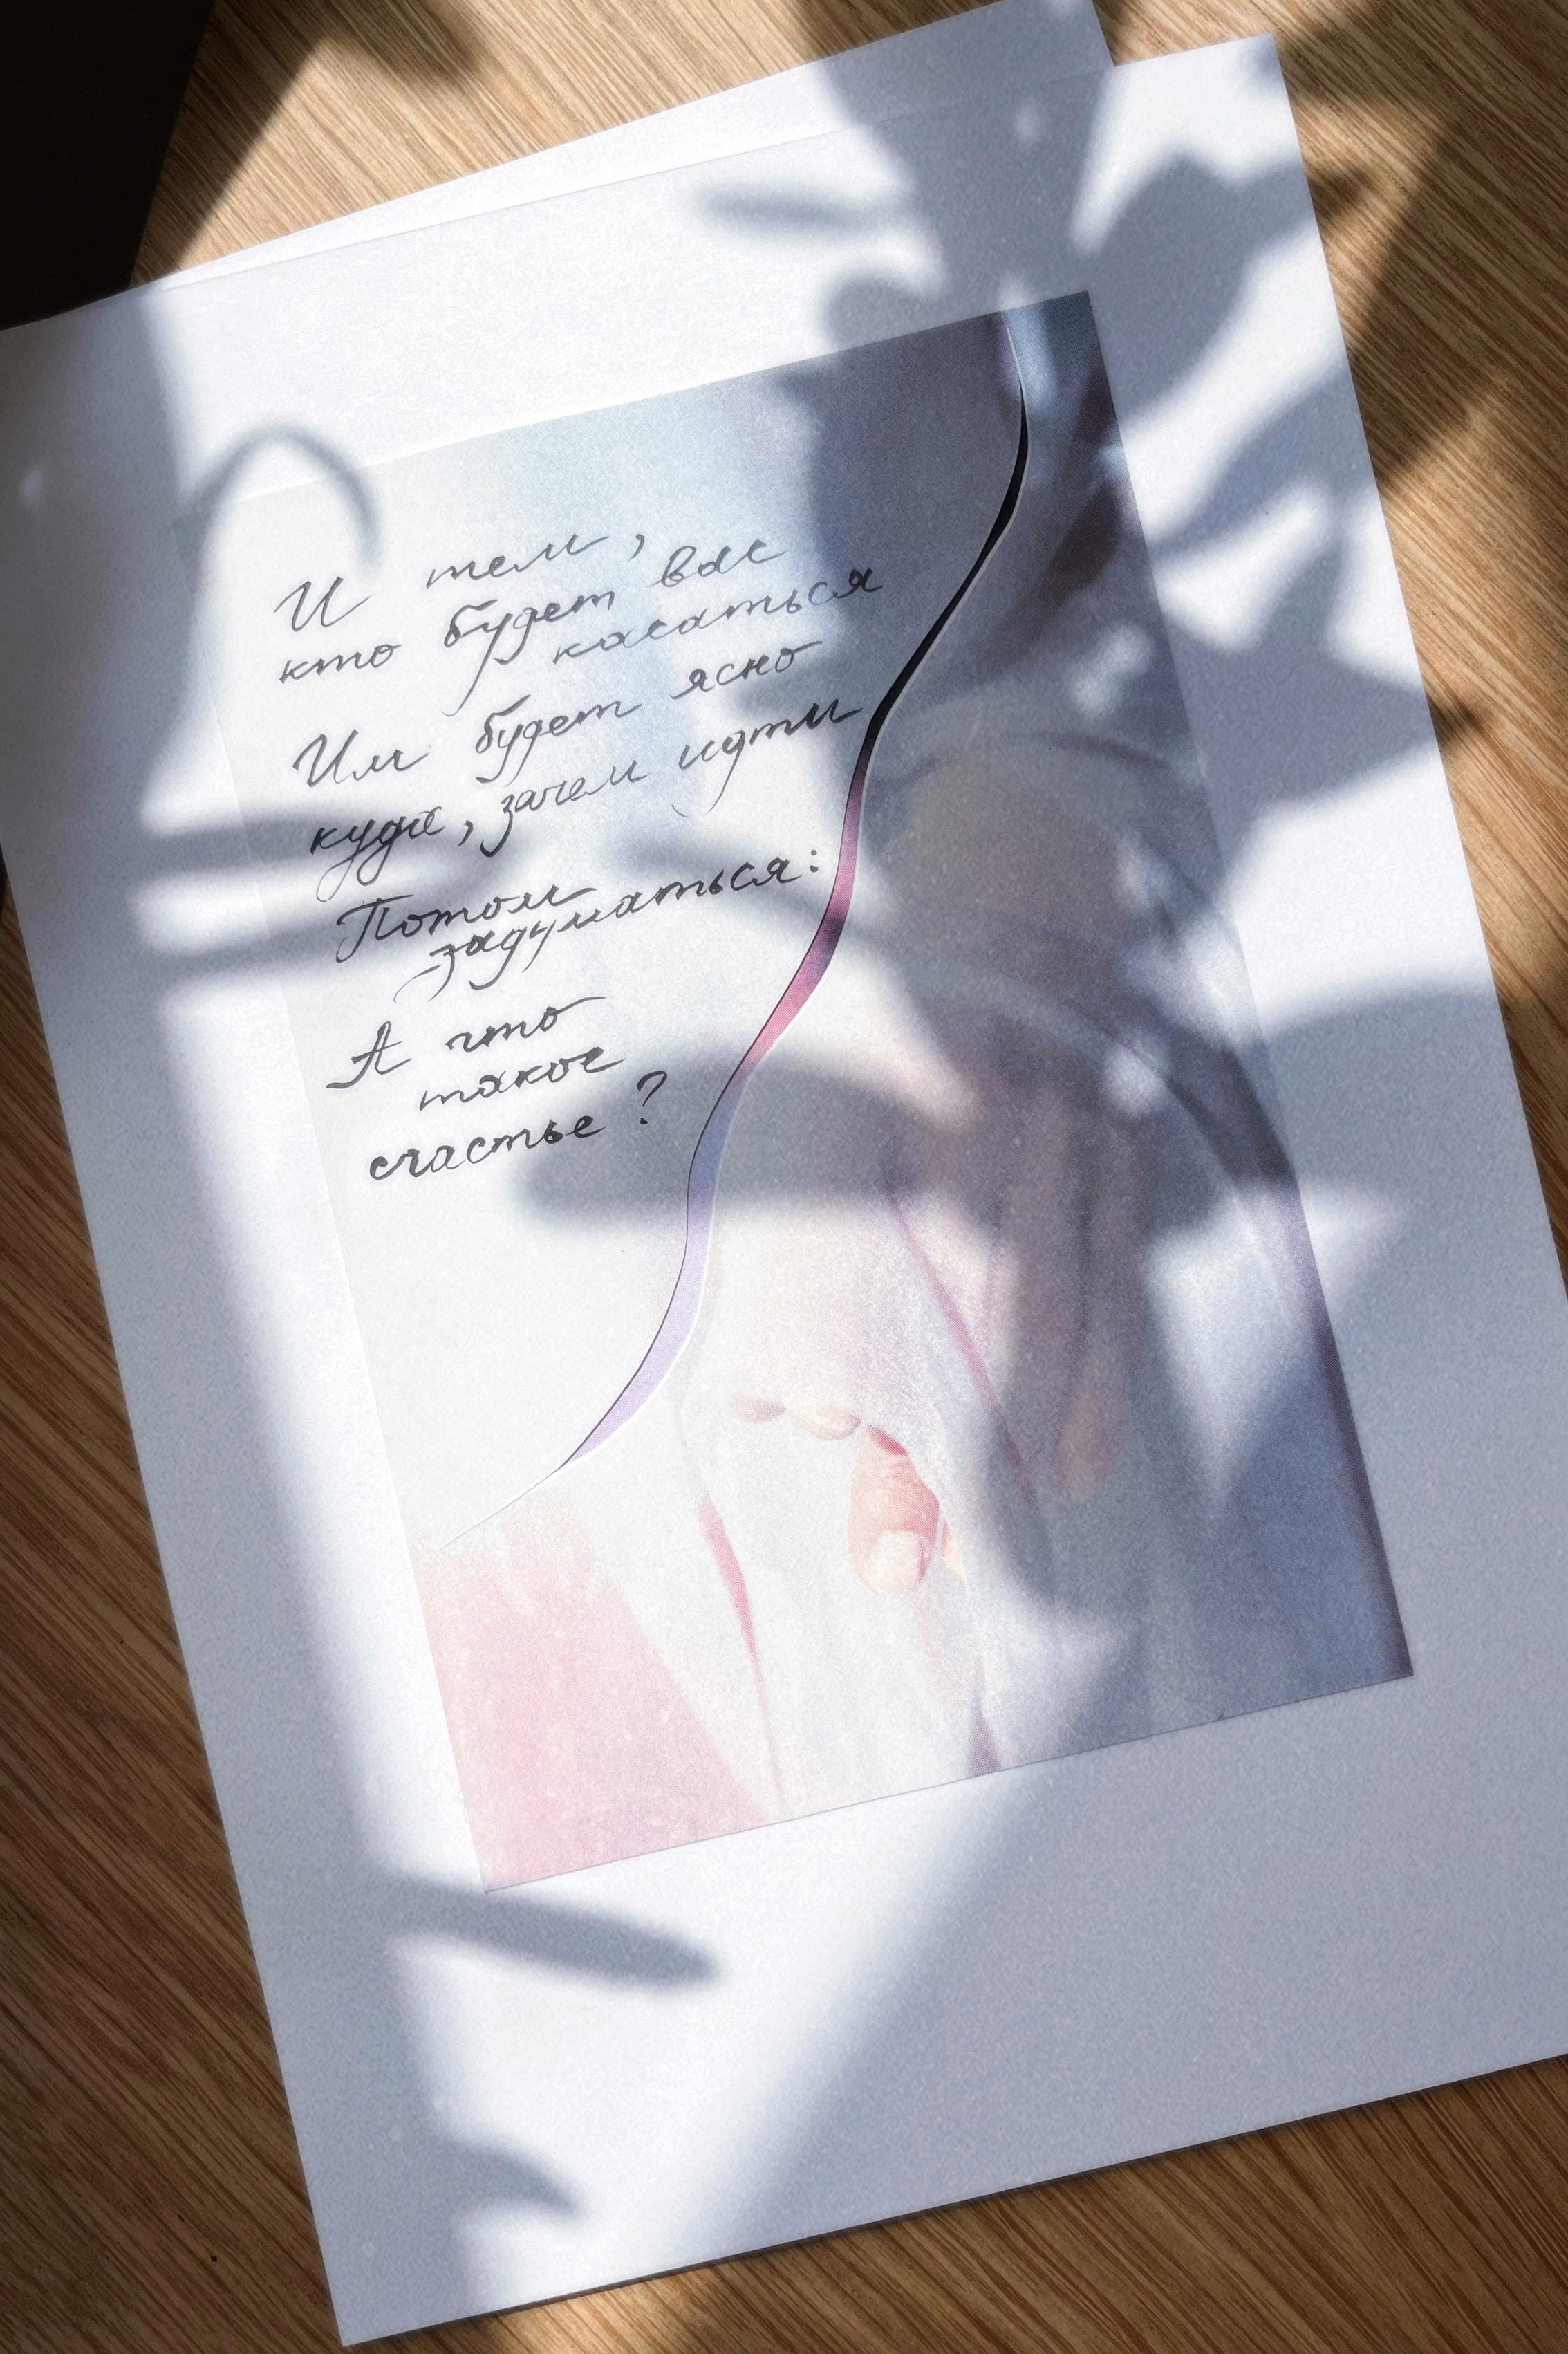 И тем,
кто будет вас
касаться
Им будет ясно
куда, зачем идти
Потом
задуматься:
А что
такое
счастье?